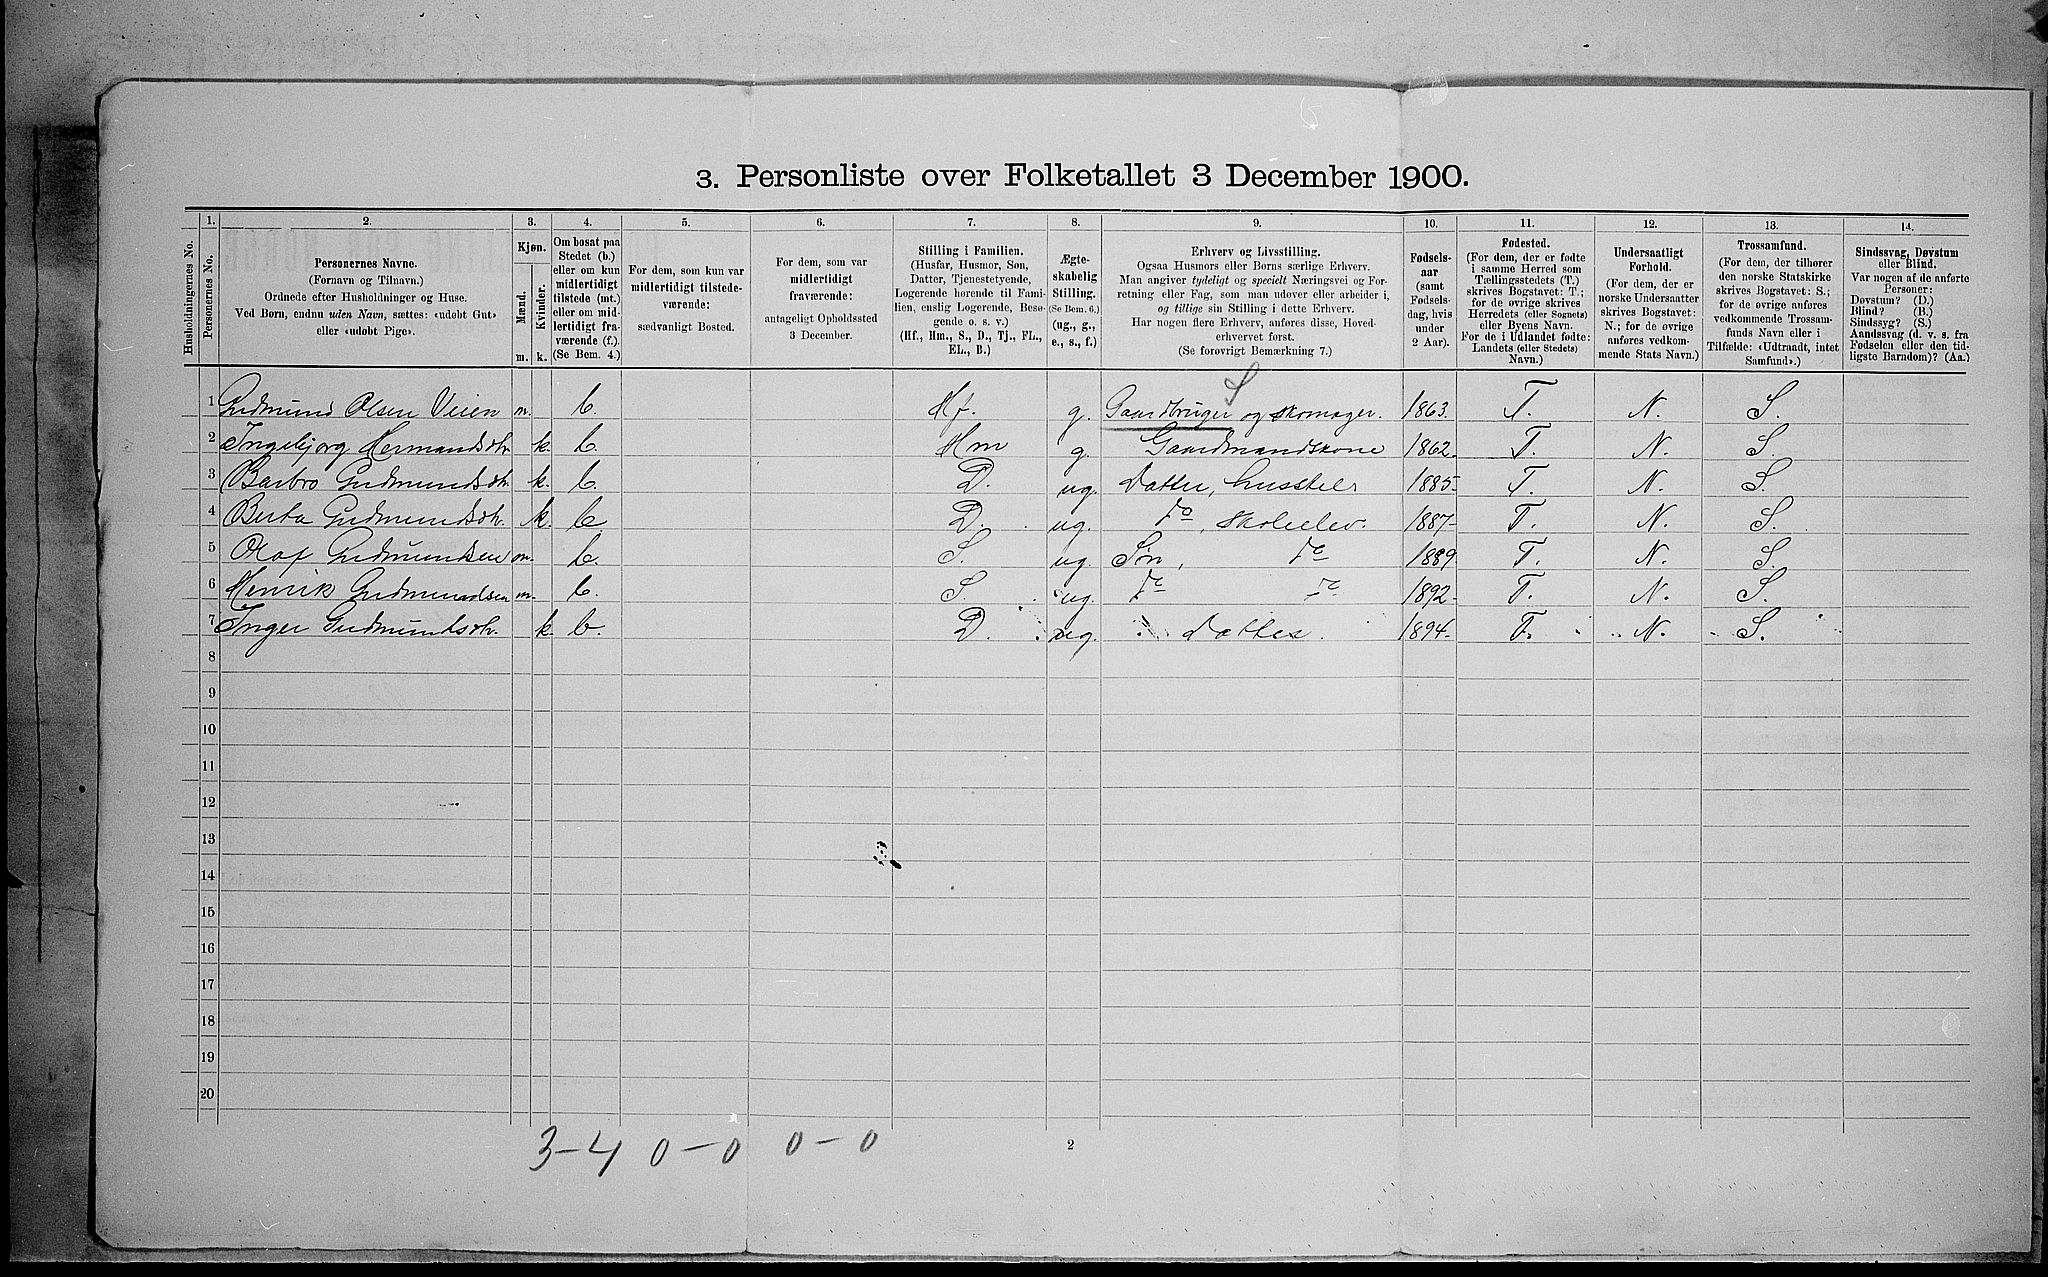 3. Personliste over Folketallet 3 December 1900.
1. 2. 3. 4. 5. 6. 7. 8. 9. 10. 11. 12. 13. 14.
Husholdningernes No.
Personernes No.
Personernes Navne.
(Fornavn og Tilnavn.)
Ordnede efter Husholdninger og Huse.
Ved Børn, endnu uden Navn, sættes: «udøbt Gut»
eller «udøbt Pige».
Kjøn.
Mænd.
Kvinder.
m. k.
Om bosat paa
Stedet (b.)
eller om kun
midlertidigt
tilstede (mt.)
eller om mid-
lertidigt fra-
værende (f.).
(Se Bem. 4.)
For dem, som kun var
midlertidigt tilstede-
værende:
sædvanligt Bosted.
For dem, som var
midlertidigt
fraværende:
antageligt Opholdssted
3 December.
Stilling i Familien.
(Husfar, Husmor, Søn,
Datter, Tjenestetyende,
Logerende hørende til Fami-
lien, enslig Logerende, Besø-
gende o. s. v.)
(Hf., Hm., S., D., Tj., FL.,
EL., B.)
Ægte-
skabelig
Stilling.
(Se Bem. 6.)
(ug., g.,
e., s., f.)
Erhverv og Livsstilling.
Ogsaa Husmors eller Børns særlige Erhverv.
Man angiver tydeligt og specielt Næringsvei og For-
retning eller Fag, som man udøver eller arbeider i,
og tillige sin Stilling i dette Erhverv.
Har nogen flere Erhverv, anføres disse, Hoved-
erhvervet først.
(Se forøvrigt Bemærkning 7.)
Fødsels-
aar
(samt
Fødsels-
dag, hvis
under
2 Aar).
Fødested.
(For dem, der er fødte
i samme Herred som
Tællingsstedets (T.)
skrives Bogstavet: T.;
for de øvrige skrives
Herredets (eller Sognets)
eller Byens Navn.
For de i Udlandet fødte:
Landets (eller Stedets)
Navn.)
Undersaatligt
Forhold.
(For dem, der er
norske Undersaatter
skrives Bogstavet:
N.; for de øvrige
anføres vedkom-
mende Stats Navn.)
Trossamfund.
(For dem, der tilhører
den norske Statskirke
skrives Bogstavet: S.;
for de øvrige anføres
vedkommende Trossam-
funds Navn eller i
Tilfælde: «Udtraadt, intet
Samfund».)
Sindssvag, Døvstum
eller Blind.
Var nogen af de anførte
Personer:
Døvstum? (D.)
Blind? (B.)
Sindssyg? (S.)
Aandssvag (d. v. s. fra
Fødselen eller den tid-
ligste Barndom)? (Aa.)
S
1 Gudmund Olsen Veien m. b. Hf. g. Gaardbruger og skomager. 1863. T. N. S.
2 Ingebjørg Hermandsdtr k. b. Hm g. Gaardmandskone 1862. T. N. S.
3 Barbro Gudmundsdtr. k. b. D. ug. Datter, husstel 1885 T. N. S.
4 Berta Gudmundsdtr. k. b D. ug. do, skoleelev. 1887 T. N. S.
5 Olaf Gudmundsen m. b. S. ug. Søn, do 1889 T. N. S.
6 Henrik Gudmundsen m. b. S. ug. do do 1892 T. N. S.
7 Inger Gudmundsdtr. k. b. D. ug. Datter. 1894. T. N. S.
8
9
10
11
12
13
14
15
16
17
18
19
20
3-4 0-0 0-0
2